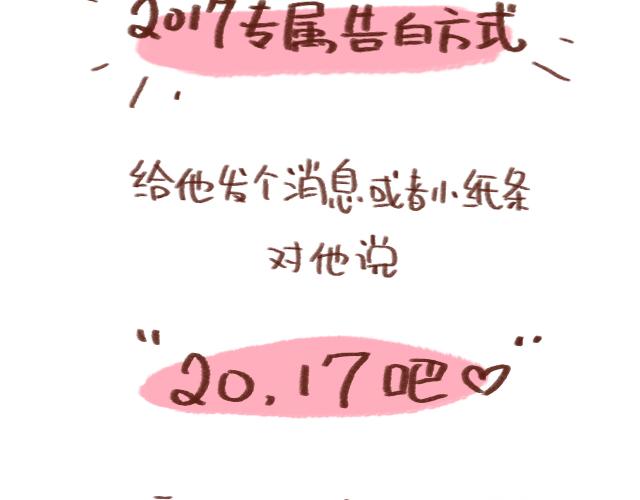 2017专属告白方式
给他发个消息或者小纸条
对他说
"20.17吧♡"